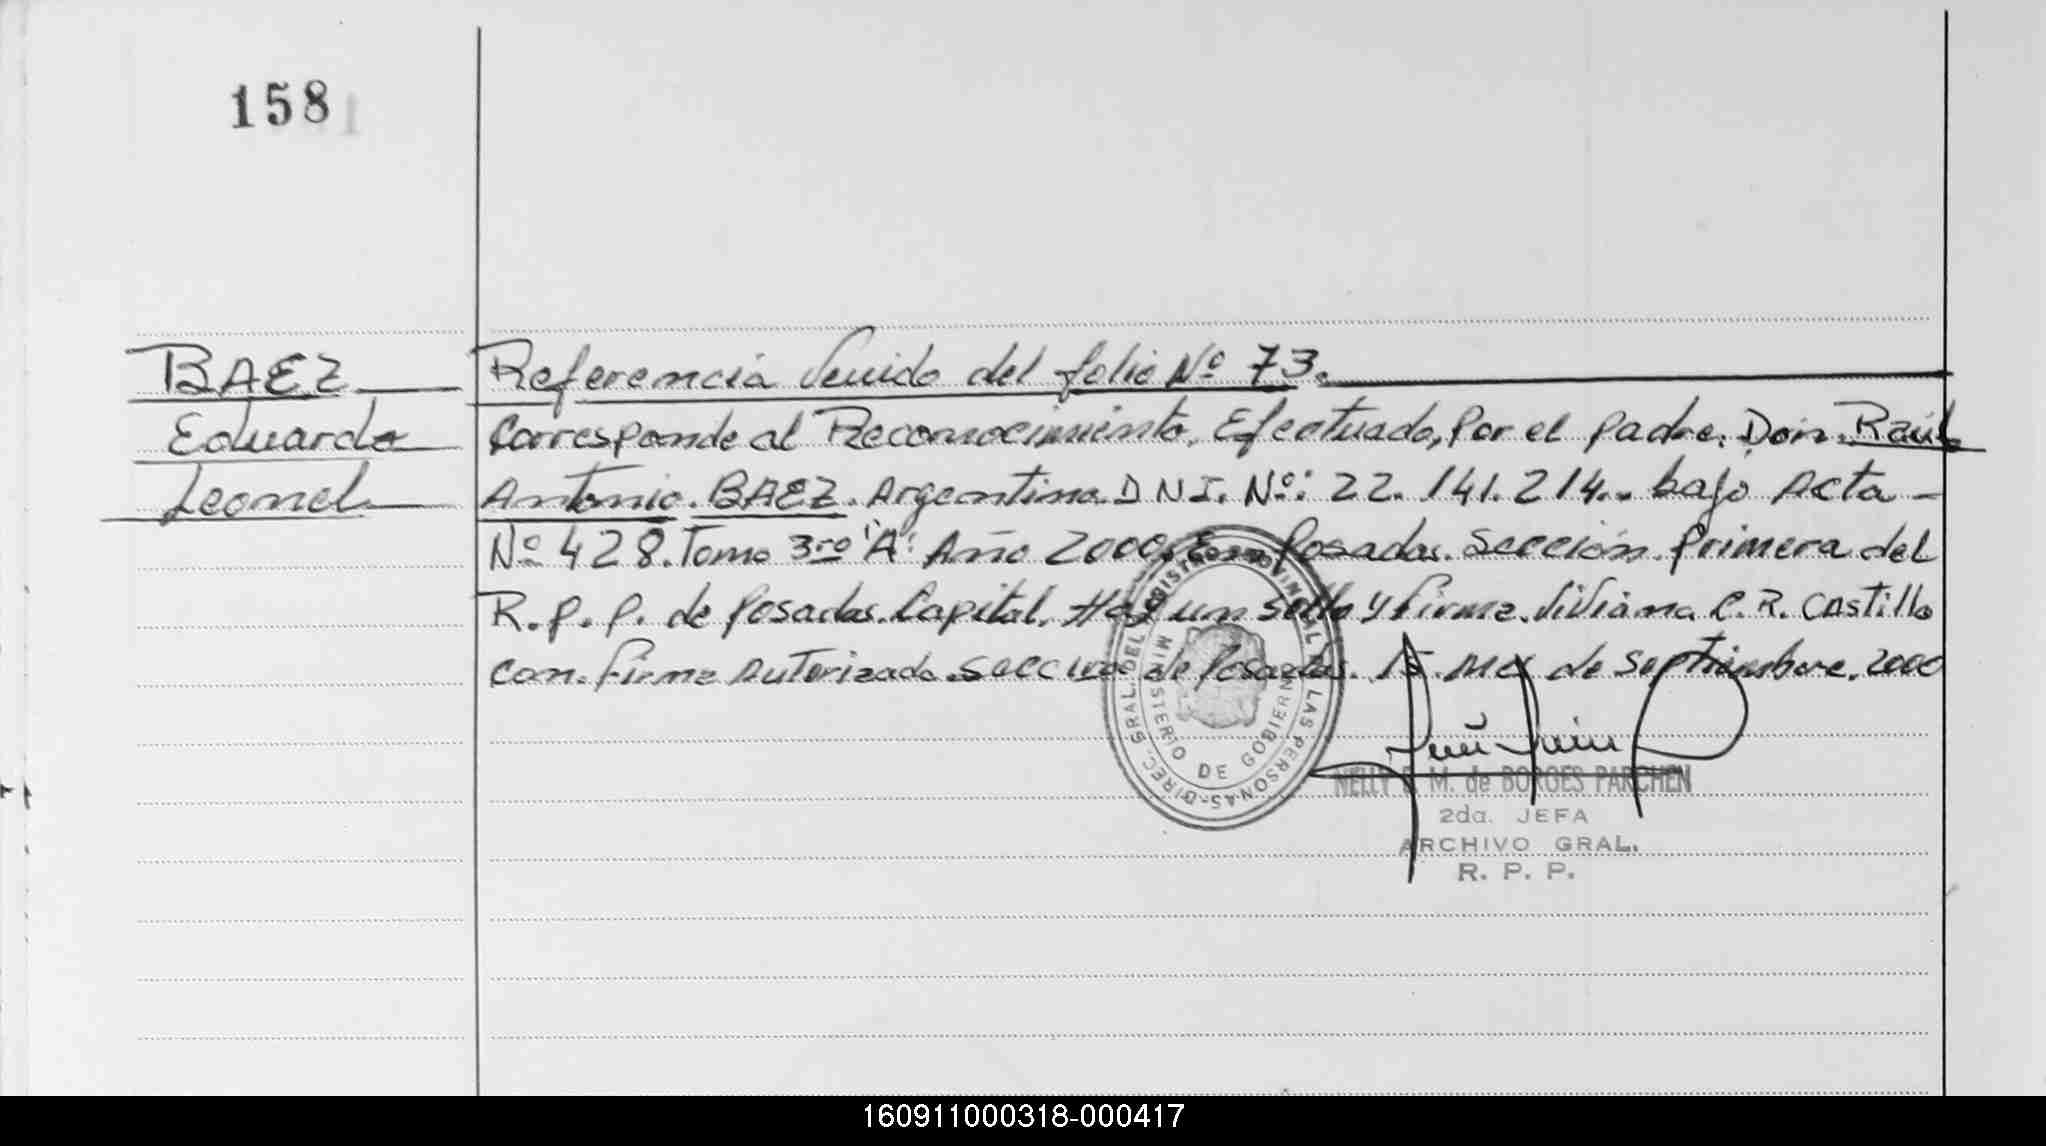 158
BAEZ
Eduardo
Leonel
Referencia Venido del folio Nº 73.
Corresponde al Reconocimiento, Efectuado, por el padre. Don. Raúl
Antonio. BAEZ. Argentino. D N I. Nº: 22.141.214.. bajo Acta -
Nº 428. Tomo 3ro "A". Año 2000. En Posadas. Sección Primera del
R. P. P. de Posadas. Capital. Hay un sello y firma. Viviana. C. R. Castillo
con. firma Autorizada. de Posadas. 15. de Septiembre. 2000
DIREC. GRAL. DEL REGISTRO PROVINCIAL DE LAS PERSONAS
MINISTERIO DE GOBIERNO
NELLY E. M. de BORGES PARCHEN
2da. JEFA
ARCHIVO GRAL.
R. P. P.
160911000318-000417